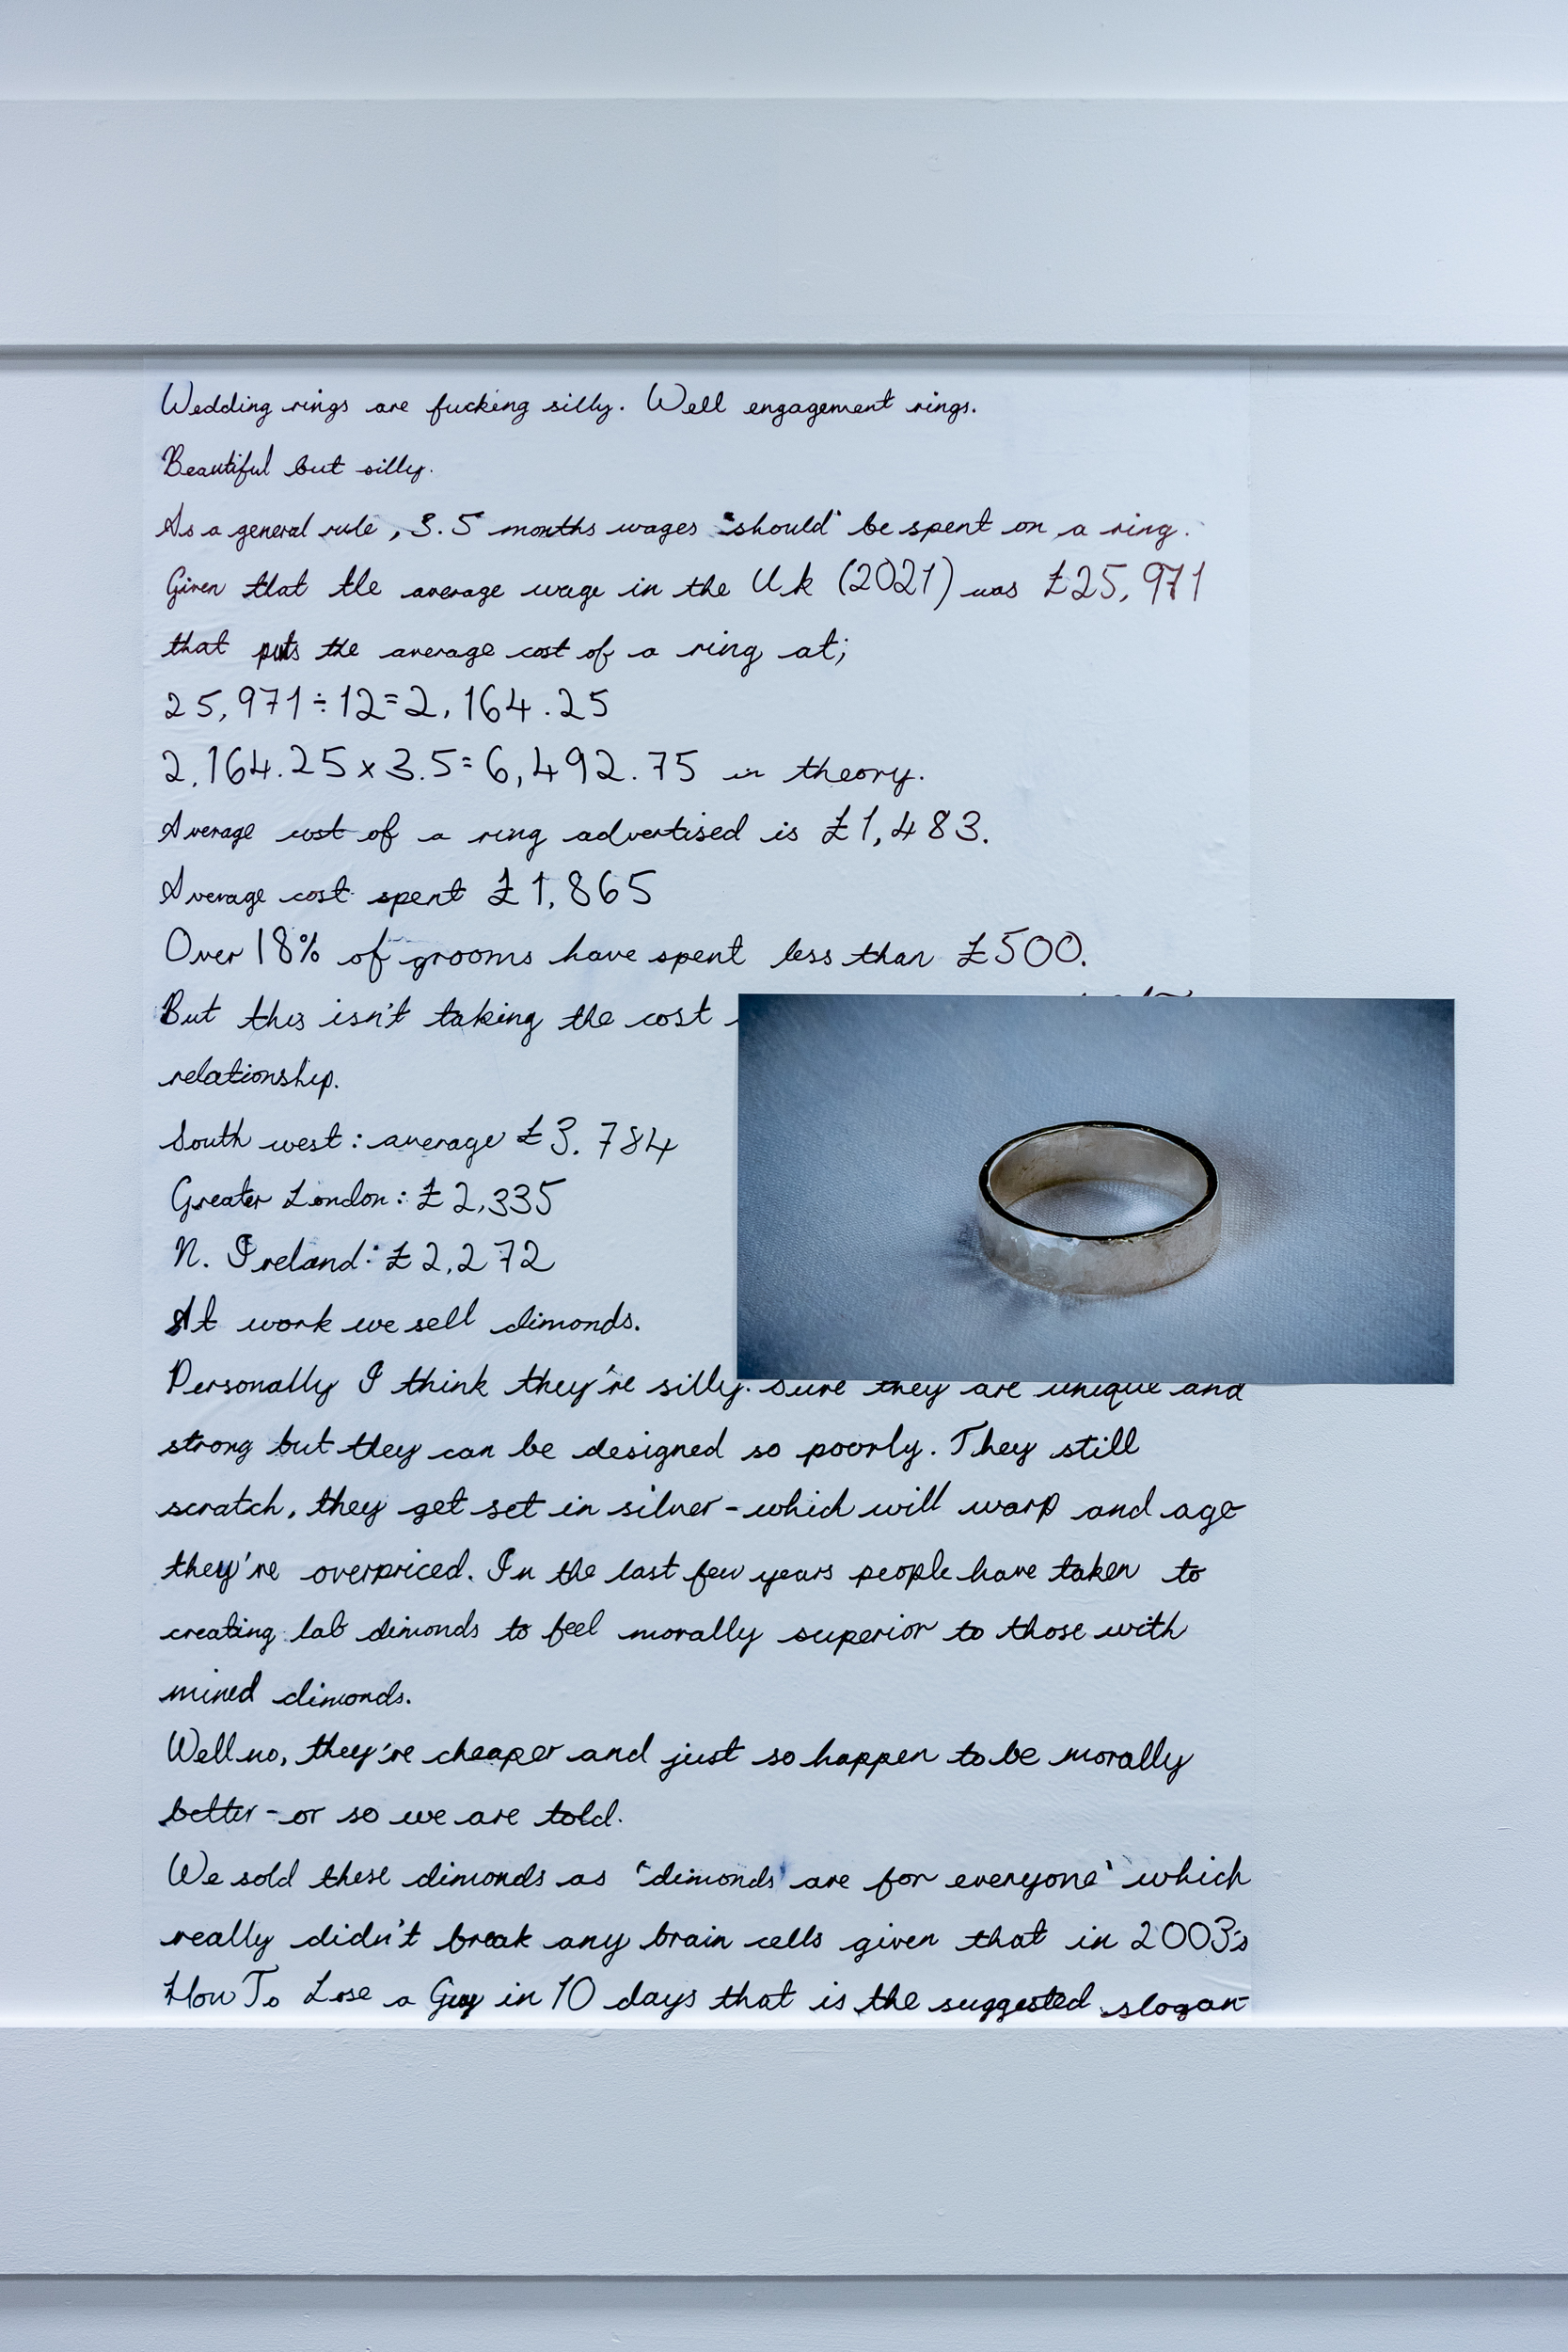 Wedding rings are fucking silly. Well engagement rings.
Beautiful but silly.
As a general rule, 3.5 months wages 'should' be spent on a ring.
Given that the average wage in the Uk (2021) was £25,971
that puts the average cost of a ring at;
25,971÷12=2,164.25
2,164.25x3.5=6,492.75 in theory.
Average cost of a ring advertised is £1,483.
Average cost spent £1,865
Over 18% of grooms have spent less than £500.
But this isn't taking the cost
relationship.
South west: average £3.784
Greater London: £2,335
N. Ireland: £2,272
At work we sell dimonds.
Personally I think they're silly. Sure they are unique and
strong but they can be designed so poorly. They still
scratch, they get set in silver-which will warp and age
they're overpriced. In the last few years people have taken to
creating lab dimonds to feel morally superior to those with
mined dimonds.
Well no, they're cheaper and just so happen to be morally
better-or so we are told.
We sold these dimonds as 'dimonds are for everyone' which
really didn't break any brain cells given that in 2003's
How To Lose a Guy in 10 days that is the suggested slogan